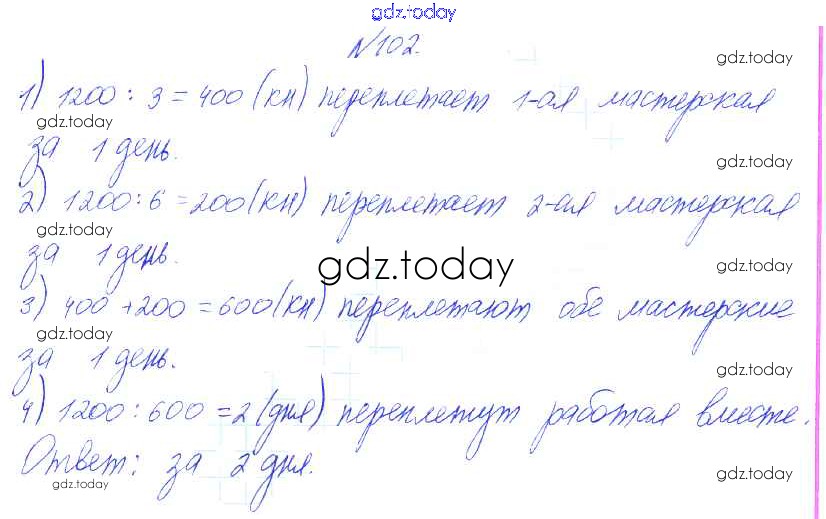 gdz.today
№102.
gdz.today
1) 1200 : 3 = 400 (кн) переплетает 1-ая мастерская
gdz.today
за 1 день.
gdz.today
2) 1200 : 6 = 200 (кн) переплетает 2-ая мастерская
gdz.today
за 1 день.
gdz.today
gdz.today
3) 400 + 200 = 600 (кн) переплетают обе мастерские
gdz.today
за 1 день.
gdz.today
4) 1200 : 600 = 2 (дня) переплетут работая вместе.
gdz.today
Ответ: за 2 дня.
gdz.today
gdz.today